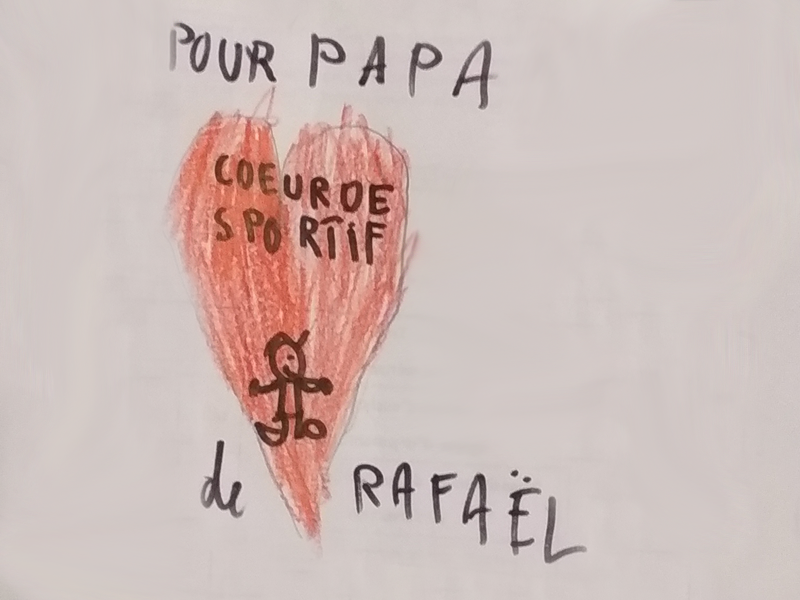 POUR PAPA
COEUR DE
SPORTIF
de RAFAËL